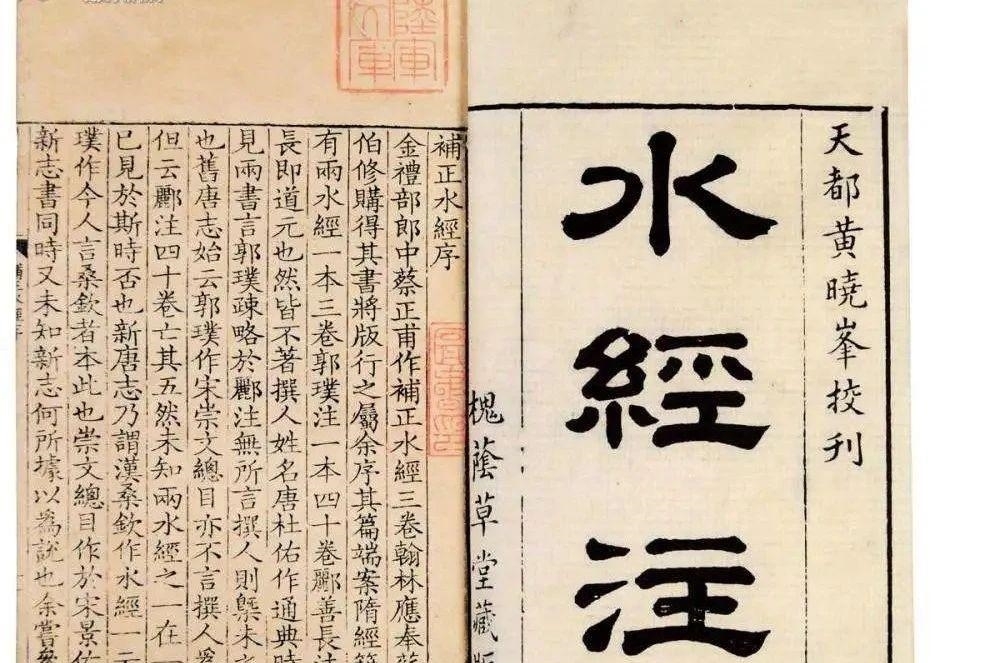 天都黄曉峯挍刊
水經注
槐蔭草堂藏版
補正水經序
金禮部郎中蔡正甫作補正水經三卷翰林應奉
伯修購得其書將版行之屬余序其篇端案隋經籍
有兩水經一本三卷郭璞注一本四十卷酈善長注
長即道元也然皆不著撰人姓名唐杜佑作通典時
見兩書言郭璞疎略於酈注無所言撰人則槩未
也舊唐志始云郭璞作宋崇文總目亦不言撰人爲
但云酈注四十卷亡其五然未知兩水經之一在
已見於斯時否也新唐志乃謂漢桑欽作水經一云
璞作今人言桑欽者本此也崇文總目作於宋景佑
新志書同時又未知新志何所據以爲說也余嘗
陸軍